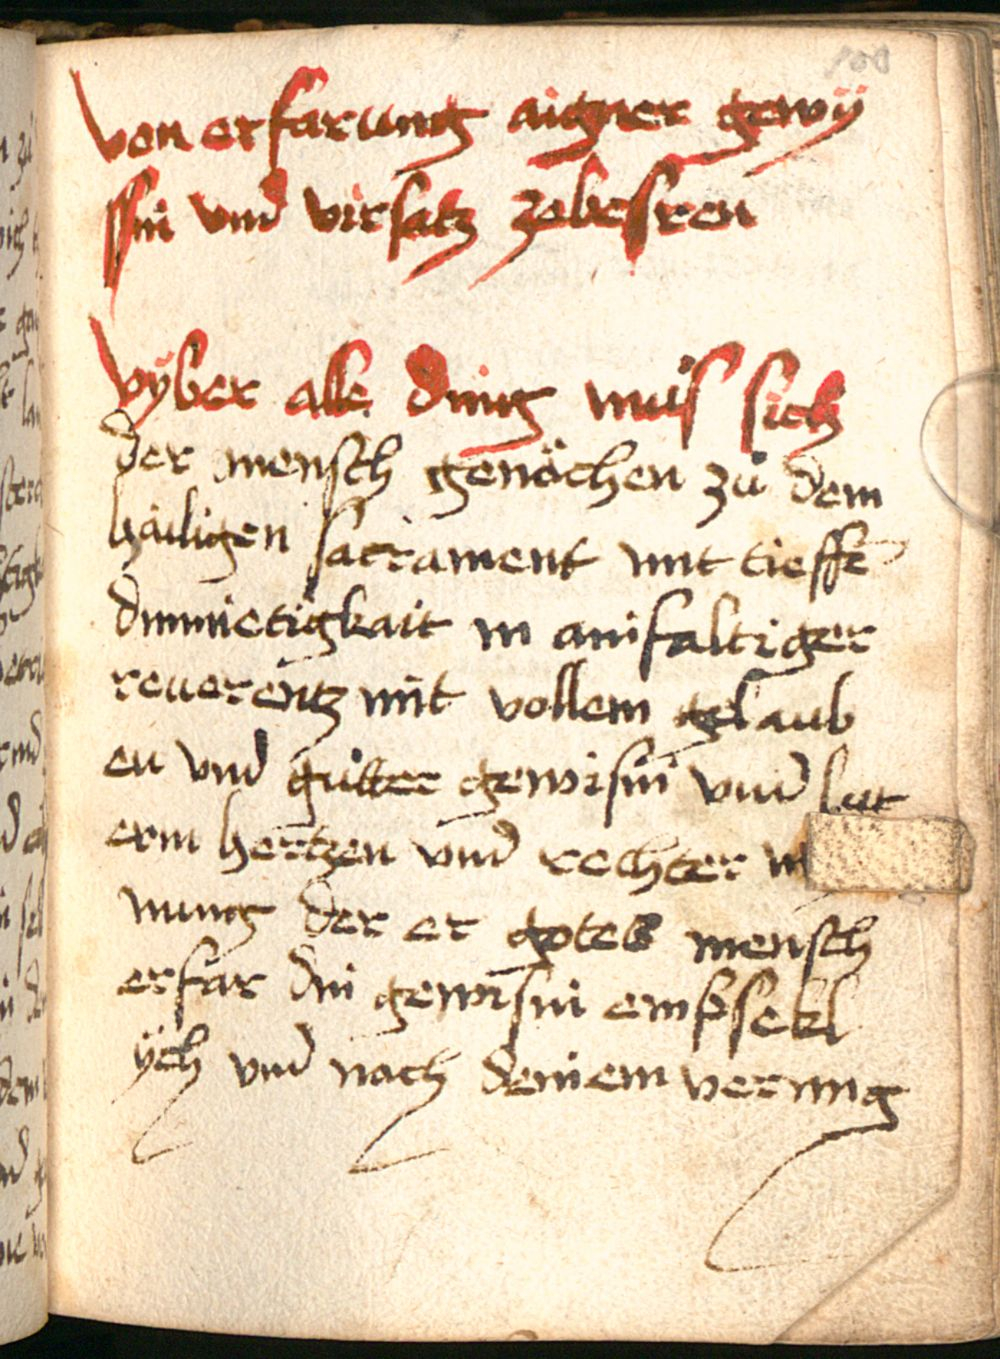 von erfarung aigner gewÿ
ssni vnd virsatz zebesren
Vÿber alle ding muͦs sich
der mensch genöchen zuͦ dem
hailigen sacrament mit tieffē
dimietigkait in ainfaltiger
reuerentz mit vollem gelaub
en vnd guͦtter gewisni vnd lut
erm hertzen vnd rechter
nung der er gotes mensch
erfar din gewisni empsekl
ÿch vnd nach deinem vermig